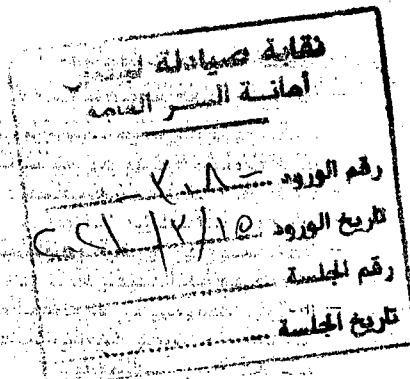 نقابة صيادلة
أمانة السر العامة
رقم الورود
تاريخ الورود ١٥/٢/
رقم الجلسة
تاريخ الجلسة